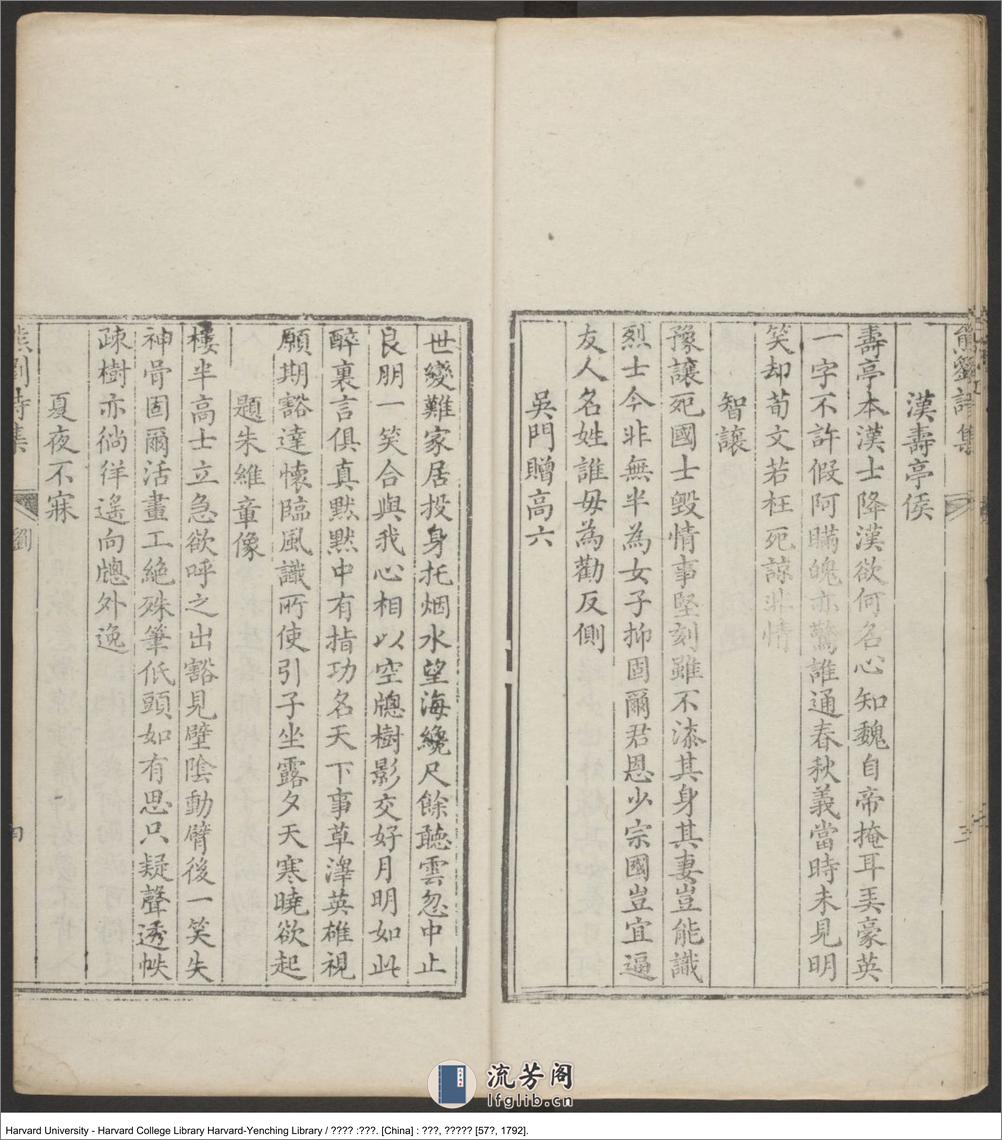 熊劉詩集
三
漢壽亭侯
壽亭本漢士降漢欲何名心知魏自帝掩耳美豪英
一字不許假阿瞞魄亦驚誰通春秋義當時未見明
笑却荀文若枉死諒非情
智讓
豫讓死國士毀情事堅刻雖不漆其身其妻豈能識
烈士今非無半為女子抑固爾君恩少宗國豈宜逼
友人名姓誰毋為勸反側
吳門贈高六
世變難家居投身托烟水望海纔尺餘聽雲忽中止
良朋一笑合與我心相以空牕樹影交好月明如此
醉裏言俱真默默中有指功名天下事草澤英雄視
願期豁達懷臨風識所使引子坐露夕天寒曉欲起
題朱維章像
樓半高士立急欲呼之出豁見壁陰動臂後一笑失
神骨固爾活畫工絕殊筆低頭如有思只疑聲透帙
疎樹亦徜徉遙向牕外逸
夏夜不寐
熊劉詩集
劉
四
流芳阁
lfglib.cn
Harvard University - Harvard College Library Harvard-Yenching Library / ???? :???. [China] : ???, ????? [57?, 1792].